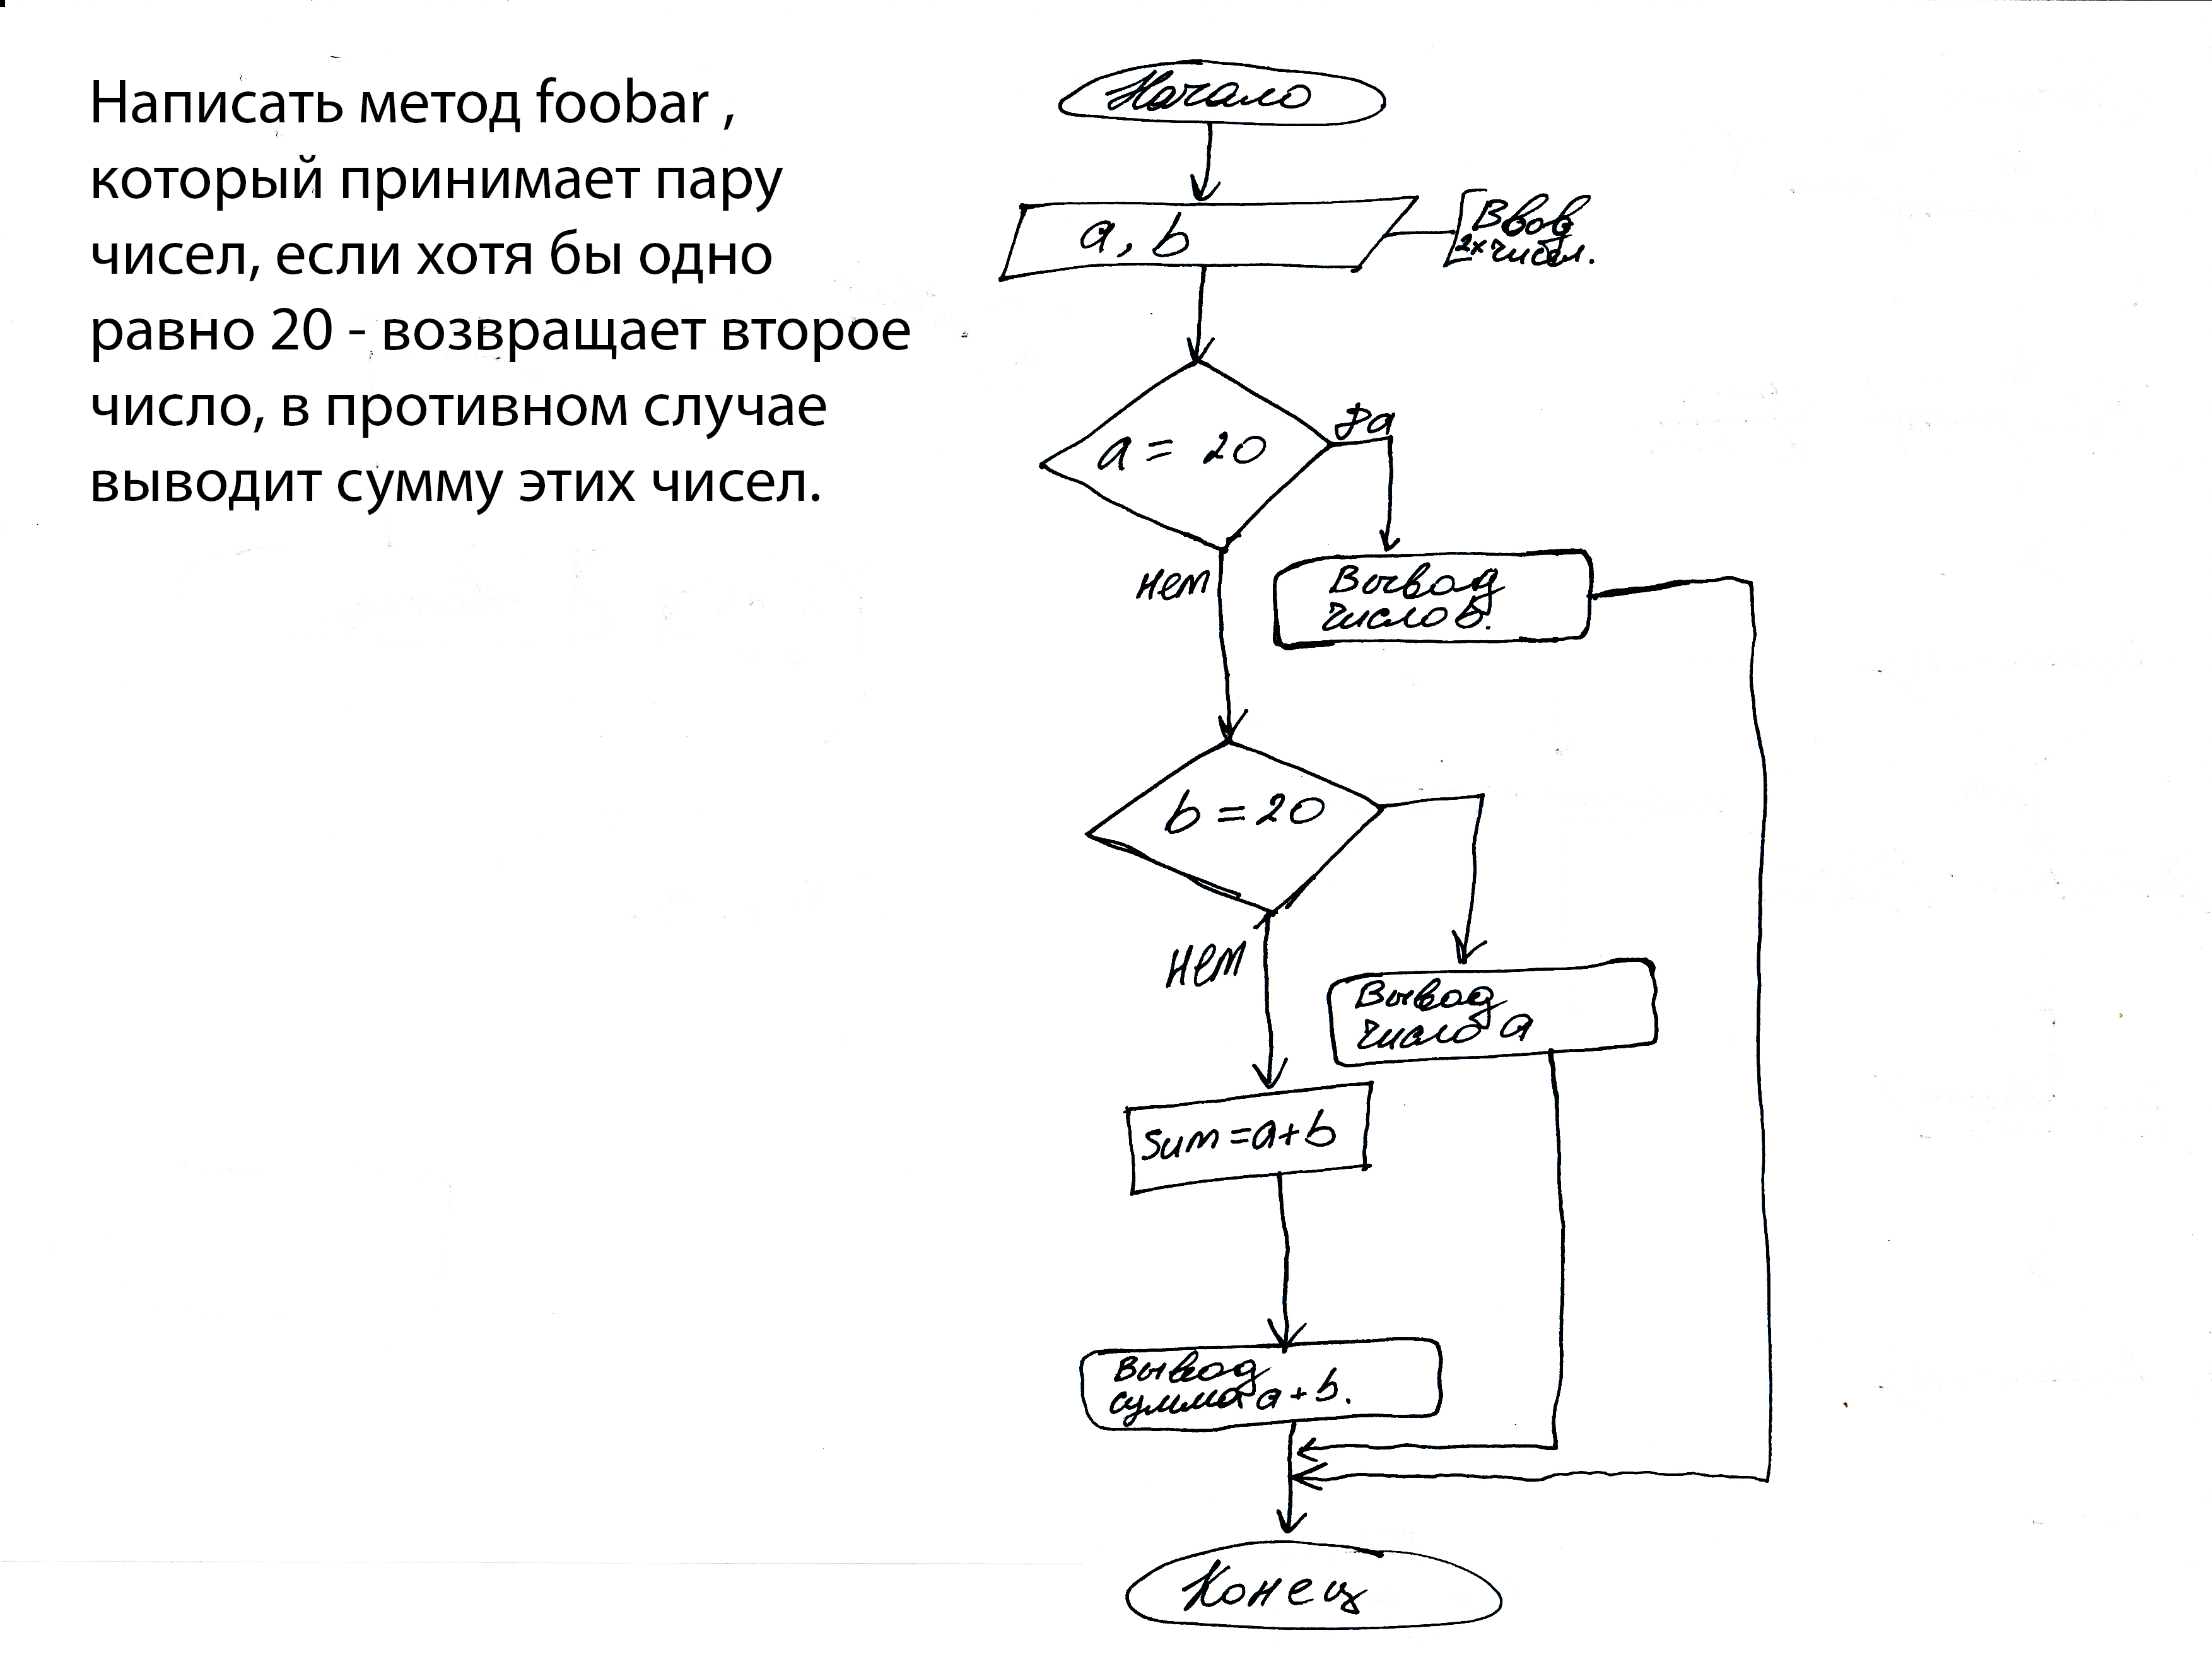 Написать метод foobar ,
который принимает пару
чисел, если хотя бы одно
равно 20 - возвращает второе
число, в противном случае
выводит сумму этих чисел.
Начало
a, b
Ввод
2х чисел.
a = 20
Да
нет
Вывод
число b.
b = 20
нет
Вывод
число a
Sum = a + b
Вывод
сумма a + b.
Конец